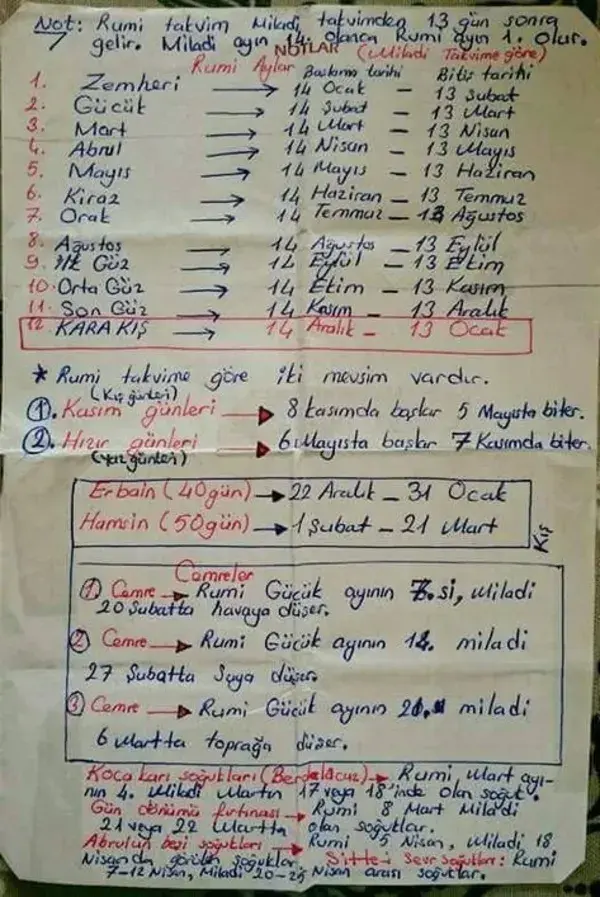 Not: Rumi takvim Miladi takvimden 13 gün sonra
gelir. Miladi ayın 14. olanca Rumi ayın 1. Olur.
NOTLAR (Miladi Takvime göre)
Rumi Aylar Başlama tarihi Bitiş tarihi
1. Zemheri → 14 Ocak - 13 Şubat
2. Gücük → 14 Şubat - 13 Mart
3. Mart → 14 Mart - 13 Nisan
4. Abrul → 14 Nisan - 13 Mayıs
5. Mayıs → 14 Mayıs - 13 Haziran
6. Kiraz → 14 Haziran - 13 Temmuz
7. Orak → 14 Temmuz - 13 Ağustos
8. Ağustos → 14 Ağustos - 13 Eylül
9. İlk Güz → 14 Eylül - 13 Ekim
10. Orta Güz → 14 Ekim - 13 Kasım
11. Son Güz → 14 Kasım - 13 Aralık
12. KARA KIŞ → 14 Aralık - 13 Ocak
* Rumi takvime göre iki mevsim vardır.
(Kış günleri)
1. Kasım günleri → 8 kasımda başlar 5 Mayısta biter.
2. Hızır günleri → 6 Mayısta başlar 7 Kasımda biter.
(Yaz günleri)
Erbain (40gün) → 22 Aralık - 31 Ocak
Hamsin (50gün) → 1 Şubat - 21 Mart
Kış
Cemreler
1 Cemre → Rumi Gücük ayının 7.si, Miladi
20 Şubatta havaya düşer.
2 Cemre → Rumi Gücük ayının 14. miladi
27 Şubatta Suya düşer.
3 Cemre → Rumi Gücük ayının 21. miladi
6 Martta toprağa düşer.
Koca karı soğukları (Berdelacuz) → Rumi Mart ayı-
nın 4. Miladi Martın 17 veya 18'inde olan soğut.
Gün dönümü fırtınası → Rumi 8 Mart Miladi
21 veya 22 Martta olan soğuklar.
Abrulun beşi soğukları → Rumi 5 Nisan, Miladi 18
Nisanda görülen soğuklar. Sitte-i Sevr Soğukları: Rumi
7-12 Nisan, Miladi 20-25 Nisan arası soğuklar.